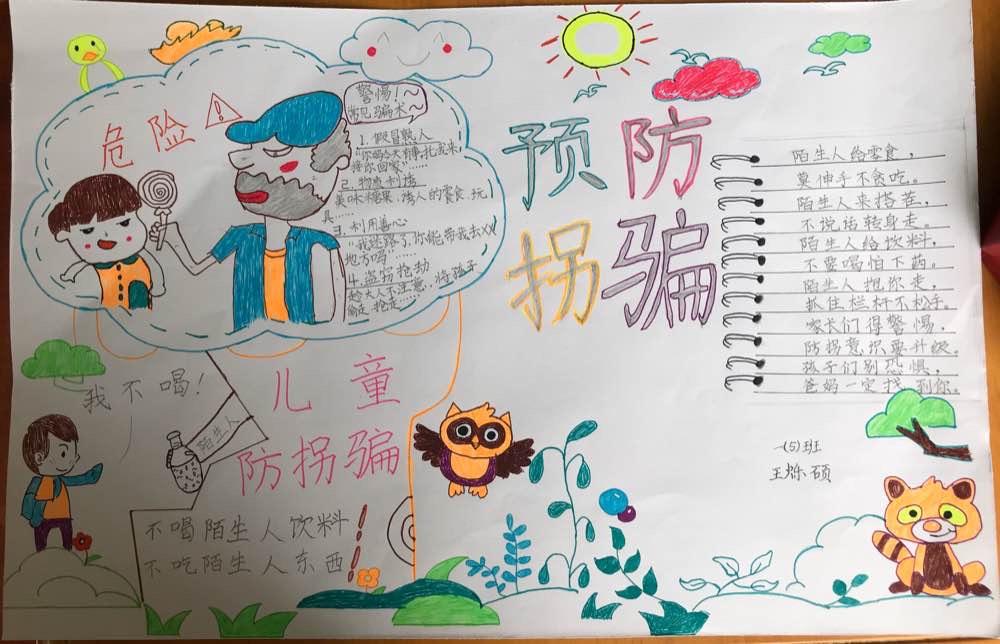 危险
警惕!
常见骗术
1. 假冒熟人
接你回家"……
2. 物质利诱
美味糖果、诱人的零食、玩
具……
3. 利用善心
"我迷路了,你能带我去XX
地方吗"……
4. 盗窃抢劫
趁大人不注意……将孩子
偷走、抢走……
预防
拐骗
陌生人给零食,
莫伸手不贪吃。
陌生人来搭茬,
不说话转身走。
陌生人给饮料,
不要喝怕下药。
陌生人抱你走,
抓住栏杆不松手。
家长们得警惕,
防拐意识要升级。
孩子们别恐惧,
爸妈一定找到你。
一(5)班
王烁硕
我不喝!
陌生人
儿童
防拐骗
不喝陌生人饮料!
不吃陌生人东西!